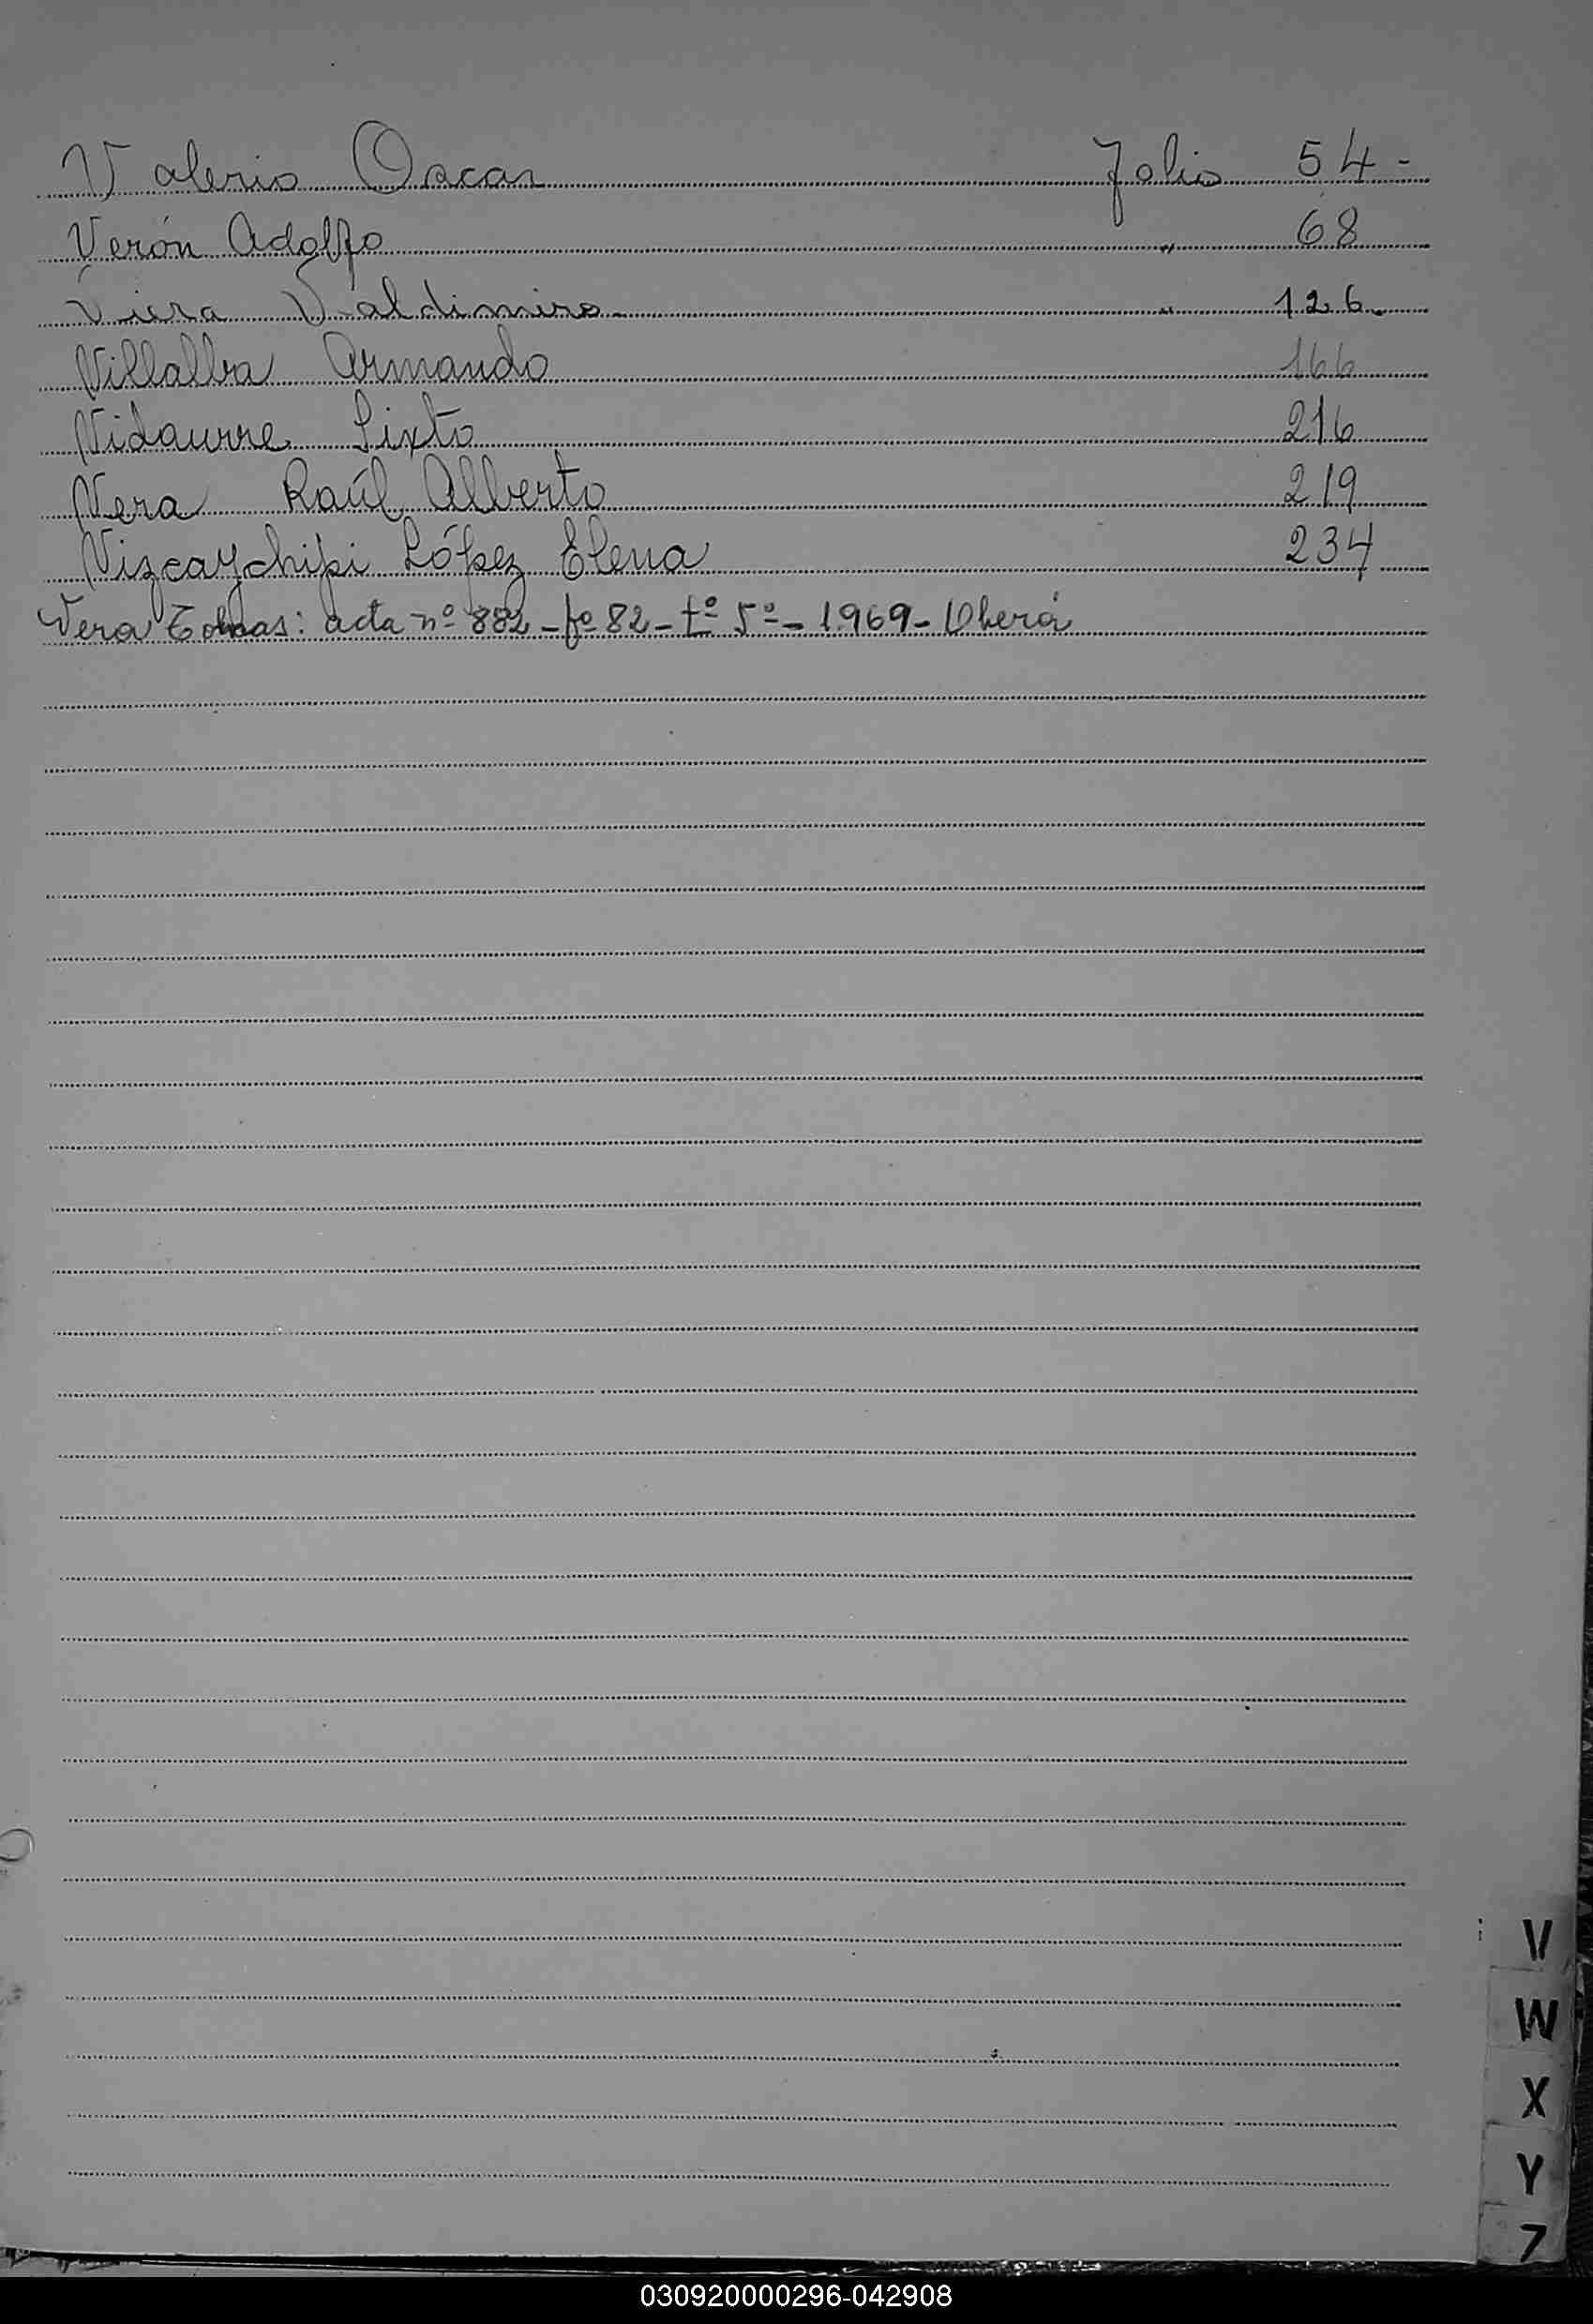 Valerio Oscar Folio 54-
Verón Adolfo " 68
Viera Valdimiro- " 126.
Villalba Armando 166
Vidaurre Sixto 216
Vera Raúl Alberto 219
Vizcaychipi López Elena 234
Vera Tomas: acta nº 882 - fº 82 - tº 5º - 1969 - Oberá
V
W
X
Y
Z
030920000296-042908